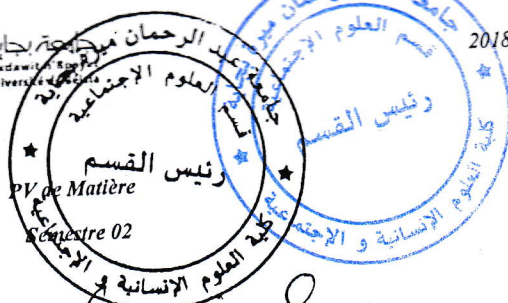 جامعة بجاية
Université de Béjaïa
2018
جامعة عبد الرحمان ميرة بجاية
قسم العلوم الإجتماعية
رئيس القسم
كلية العلوم الإنسانية و الإجتماعية
جامعة عبد الرحمان ميرة بجاية
قسم العلوم الإجتماعية
رئيس القسم
كلية العلوم الإنسانية و الإجتماعية
PV de Matière
Semestre 02